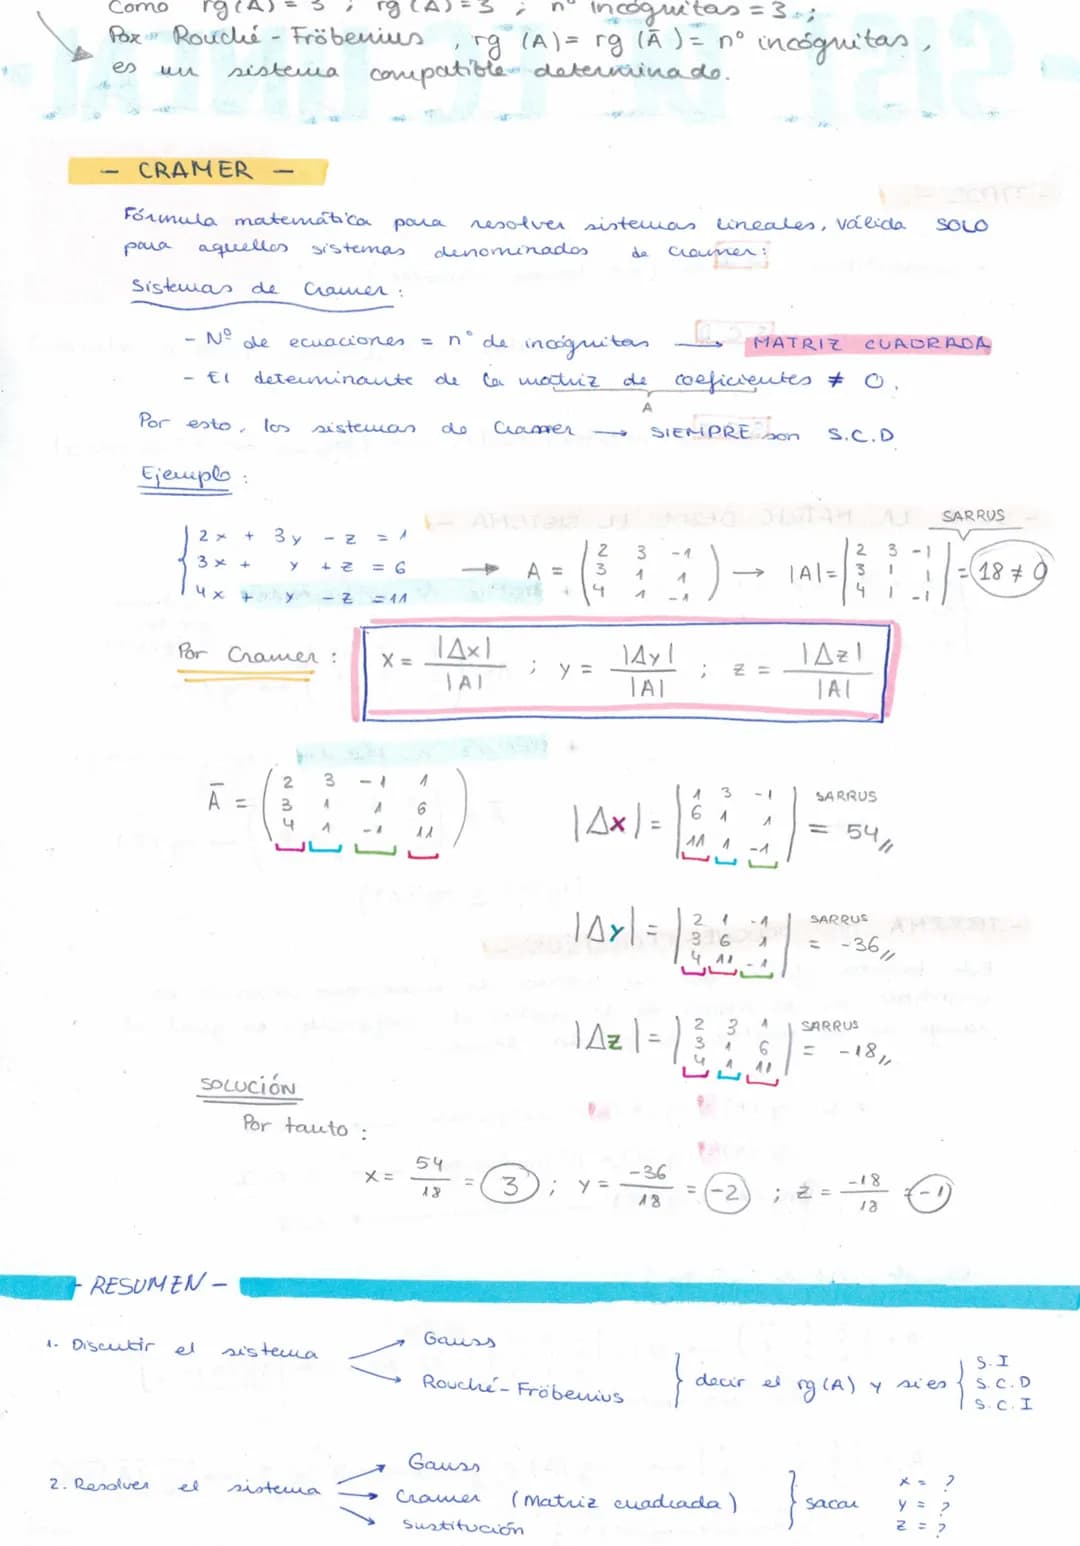 Como rg(A) = 3 ; rg(A) = 3 ; nº incógnitas = 3 ;
Por Rouché - Fröbenius, rg (A) = rg (Ā) = nº incógnitas,
es un sistema compatible determinado.
- CRAMER -
Fórmula matemática para resolver sistemas lineales, válida SOLO
para aquellos sistemas denominados de Cramer:
Sistemas de Cramer:
- Nº de ecuaciones = nº de incógnitas → MATRIZ CUADRADA
- El determinante de la matriz de coeficientes ≠ 0.
A
Por esto, los sistemas de Cramer → SIEMPRE son S.C.D
Ejemplo:
SARRUS
2x + 3y - z = 1
3x + y + z = 6 → A = → |A| = = 18 ≠ 0
4x + y - z = 11
2 3 -1
3 1 1
4 1 -1
2 3 -1
3 1 1
4 1 -1
Por Cramer: x = |Δx| / |A| ; y = |Δy| / |A| ; z = |Δz| / |A|
Ā =
2 3 -1 1
3 1 1 6
4 1 -1 11
|Δx| =
1 3 -1
6 1 1
11 1 -1
SARRUS
= 54,,
|Δy| =
2 1 -1
3 6 1
4 11 -1
SARRUS
= -36,,
|Δz| =
2 3 1
3 1 6
4 1 11
SARRUS
= -18,,
SOLUCIÓN
Por tanto:
x = 54/18 = 3 ; y = -36/18 = -2 ; z = -18/18 = -1
- RESUMEN -
1. Discutir el sistema
Gauss
Rouché - Fröbenius
decir el rg(A) y si es
S.I
S.C.D
S.C.I
2. Resolver el sistema
Gauss
Cramer (Matriz cuadrada)
Sustitución
sacar
x = ?
y = ?
z = ?